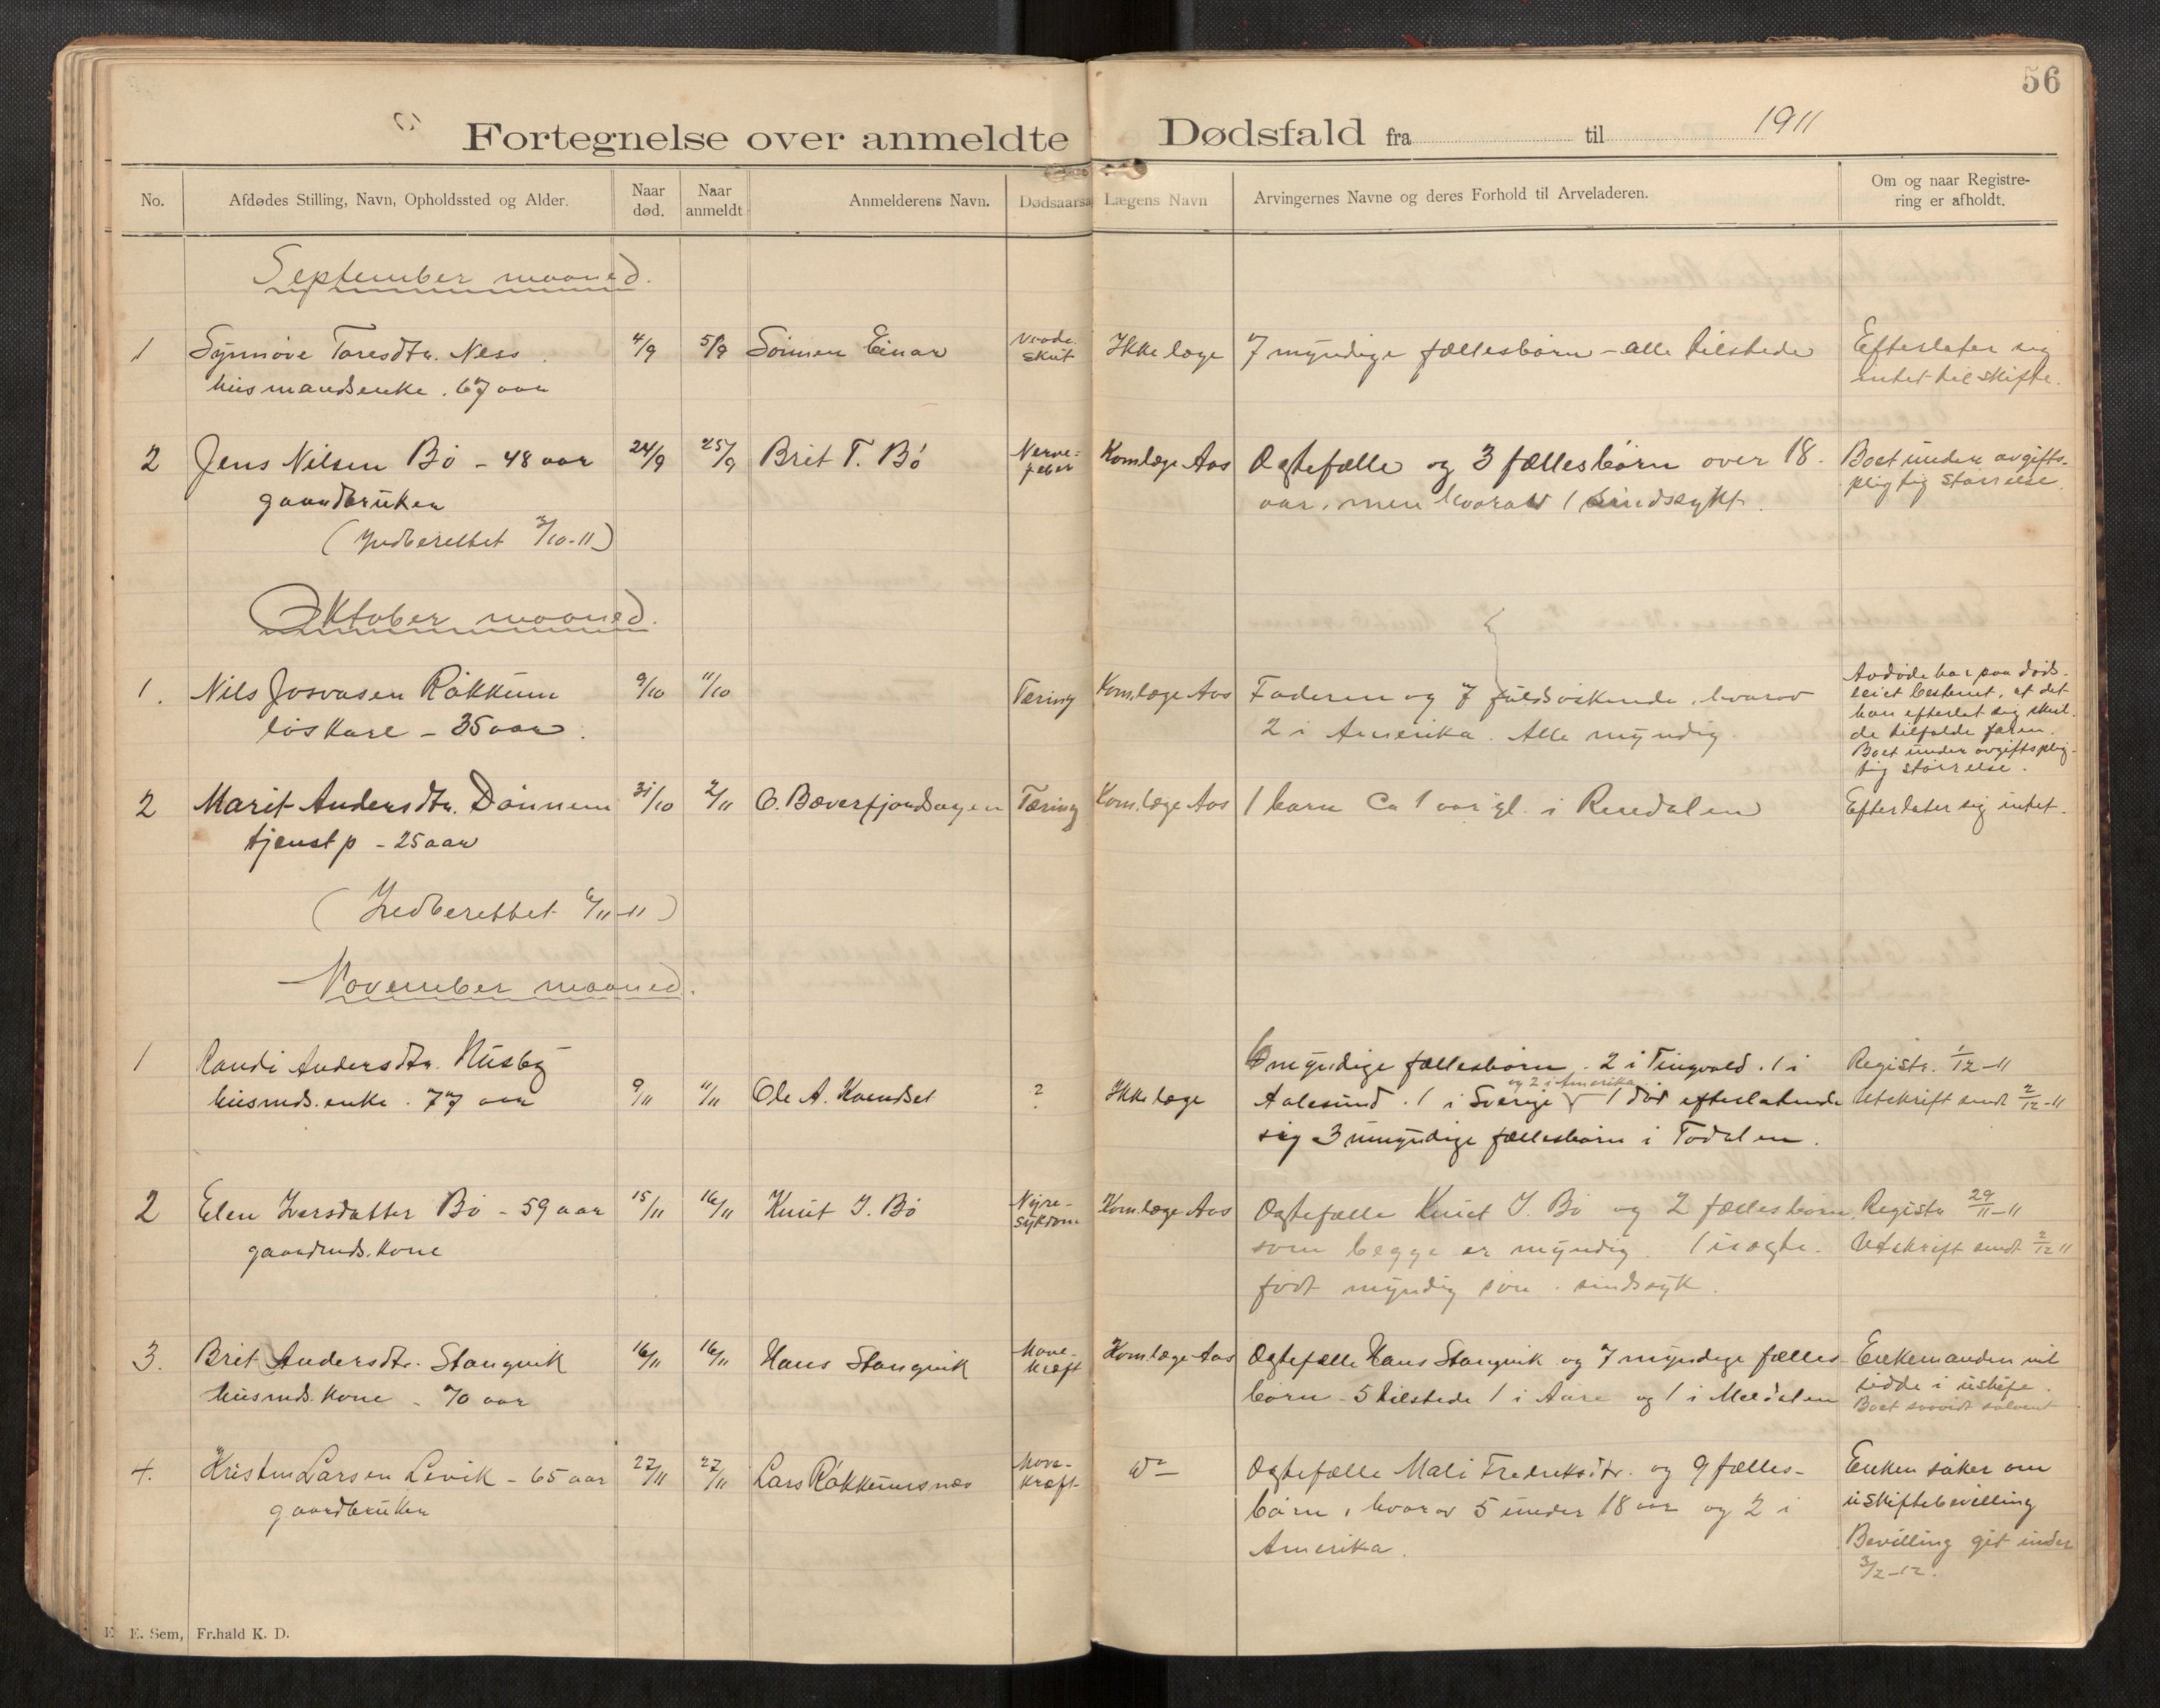 56
Fortegnelse over anmeldte Dødsfald fra til 1911
No. Afdødes Stilling, Navn, Opholdssted og Alder. Naar død. Naar anmeldt Anmelderens Navn. Dødsaarsa Lægens Navn Arvingernes Navne og deres Forhold til Arveladeren. Om og naar Registrering er afholdt.
September maaned.
1 Synnøve Toresdtr. Ness 4/9 5/9 Sönnen Einar skut Ikke læge 7 myndige fællesbørn - alle tilstede Efterlater sig
husmandsenke. 67 aar intet til skifte.
2 Jens Nilsen Bö - 48 aar 24/9 25/9 Brit T. Bö Nerve- Kom.læge Aas Ægtefælle og 3 fællesbörn over 18 Boet under avgifts-
gaardbruker feber aar, men hvorav 1 sindssykt. pligtig störrelse.
(Indberettet 3/10-11)
Oktober maaned.
1. Nils Josvasen Räkkum 9/10 11/10 Tæring Kom.læge Aas Faderen og 7 fuldsöskende, hvorav
löskare - 35 aar. 2 i Amerika. Alle myndig.
Avdöde har paa döds-
leiet bestemt, at det
han efterlot sig skul-
de tilfalde faren.
Boet under avgiftsplig-
tig störrelse.
2 Marit Andersdtr. Dönnem 31/10 2/11 O. Bæverfjordsagen Tæring Kom.læge Aas 1 barn ca 1 aar gl. i Rindalen Efterlater sig intet.
tjenst p - 25 aar
(Indberettet 6/11-11)
November maaned.
1 Randi Andersdtr. Husby 6 myndige fællesbörn. 2 i Tingvold. 1 i Registr. 1/12-11
husmds.enke. 77 aar 9/11 11/11 Ole A. Kvendset ? Ikke læge Aalesund. 1 i Sverige og 2 i Amerika 1 död efterlatende Utskrift sendt 2/12-11
sig 3 umyndige fællesbörn i Todalen.
2 Elen Iversdatter Bö - 59 aar 15/11 16/11 Knut I. Bö Nyre- Kom.læge Aas Ægtefælle Knut I. Bö og 2 fællesbörn Registr 29/11-11
gaardmds. kone sykdom som begge er myndig. 1 uægte- Utskrift sendt 2/12 11
födt myndig sön. sindssyk.
3. Brit Andersdtr. Stangvik 16/11 16/11 Hans Stangvik Mave- Kom.læge Aas Ægtefælle Hans Stangvik og 7 myndige fælles- Enkemanden vil
husmds. kone - 70 aar kræft börn - 5 tilstede 1 i Aure og 1 i Meldalen sidde i uskifte.
Boet solvent
4. Kristen Larsen Levik - 65 aar 27/11 27/11 Lars Räkkumsnæs Mave- do Ægtefælle Mali Fredriksdtr. og 9 fælles- Enken söker om
gaardbruker kræft- börn, hvorav 5 under 18 aar og 2 i uskiftebevilling
Amerika. Bevilling git under
3/2-12.
E. Sem, Fr.hald K. D.